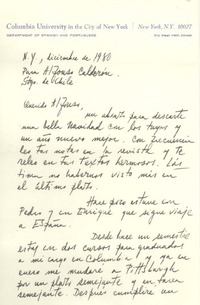 Columbia University in the City of New York | New York, N.Y. 10027
DEPARTMENT OF SPANISH AND PORTUGUESE
N.Y., diciembre de 1980
Para Alfonso Calderón
Stgo. de Chile
Querido Alfonso,
un abrazo para desearte
una bella Navidad con los tuyos y
un año nuevo mejor. Con frecuencia
leo tus notas en la revista y te
releo en tus textos hermosos. Lás-
tima no habernos visto más en
el último
Hace poco estuve con
Pedro y con Enrique que sigue viaje
a España.
Desde hace un semestre
estoy con dos cursos para graduados
a mi cargo en Columbia y ya en
enero me mudaré a Pittsburgh
por un plazo semejante y en tarea
semejante. Después cumpliré un